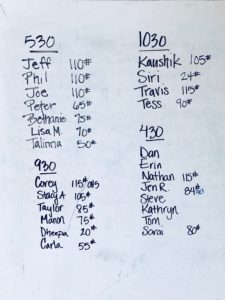 530
Jeff 110#
Phil 110#
Joe 110#
Peter 65#
Bethanie 75#
Lisa M. 70#
Talinna 50#
930
Corey 115#
Stacy A 105#
Taylor 85#
Manon 75#
Dheepa 20#
Carla 55#
1030
Kaushik 105#
Siri 24#
Travis 115#
Tess 90#
430
Dan
Erin
Nathan 115#
Jen R. 84#
Steve
Kathryn
Tom
Sarai 80#